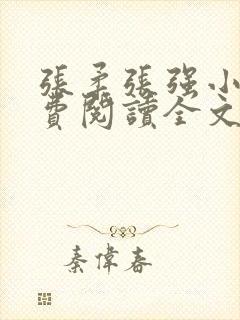 張柔張强小
費閱讀全文
秦偉春